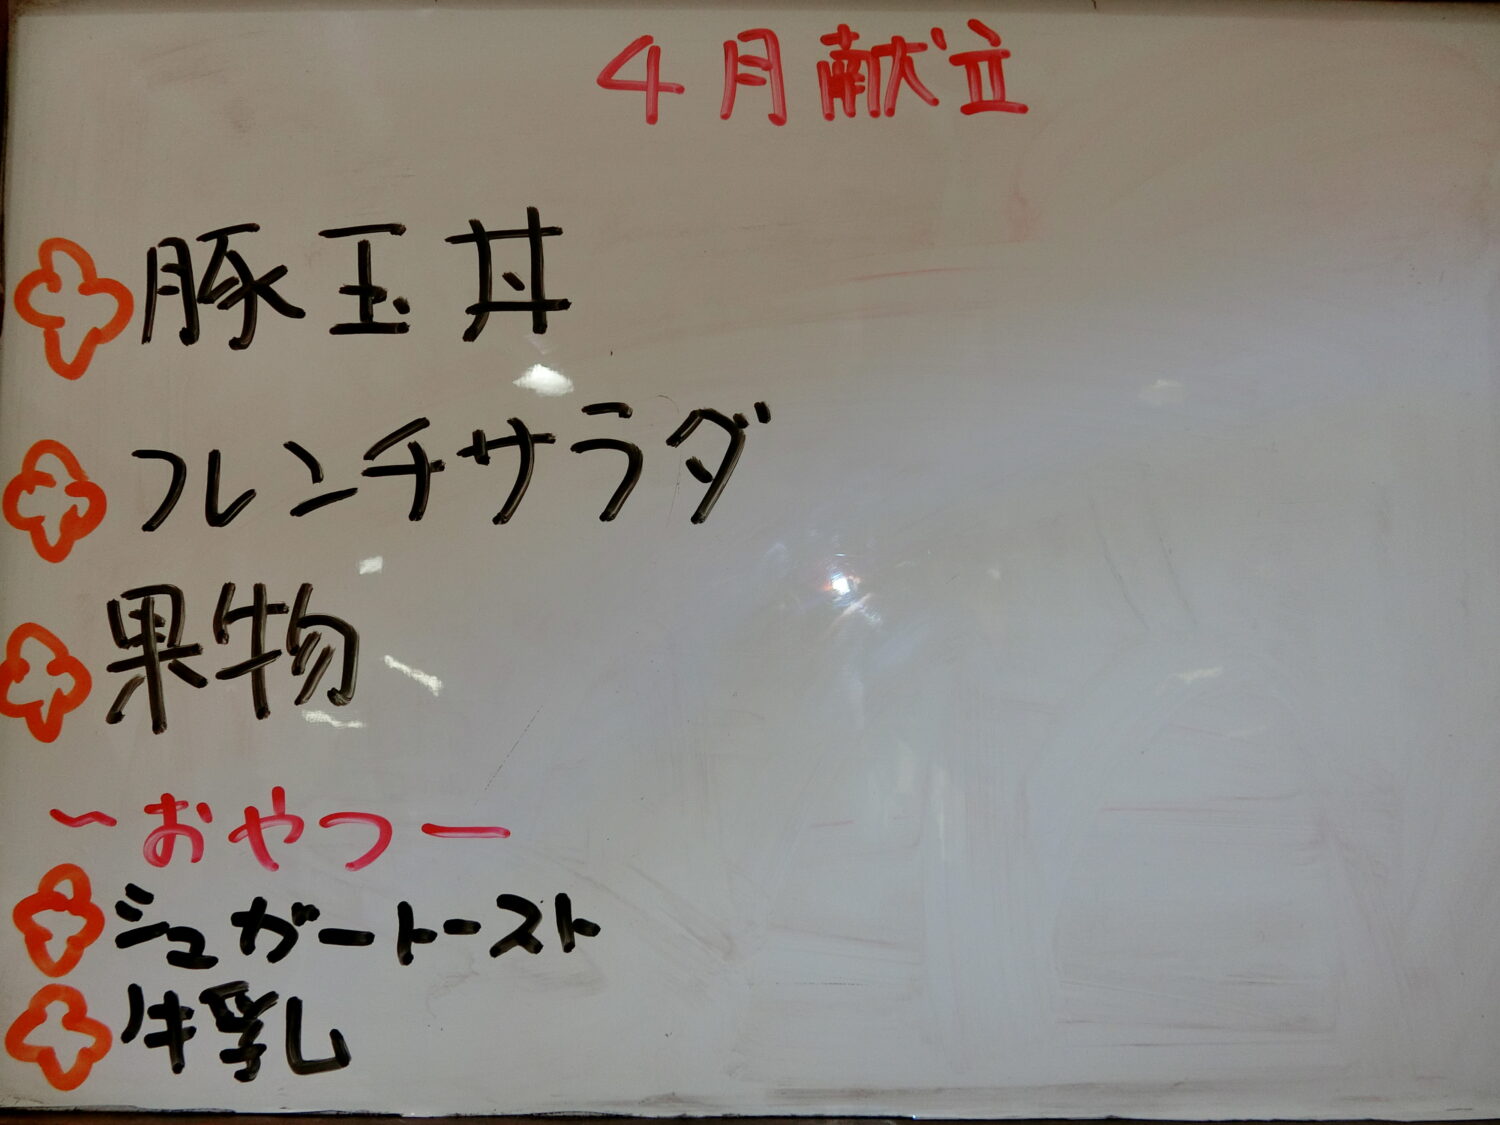 4月献立
豚玉丼
フレンチサラダ
果物
～おやつー
シュガートースト
牛乳